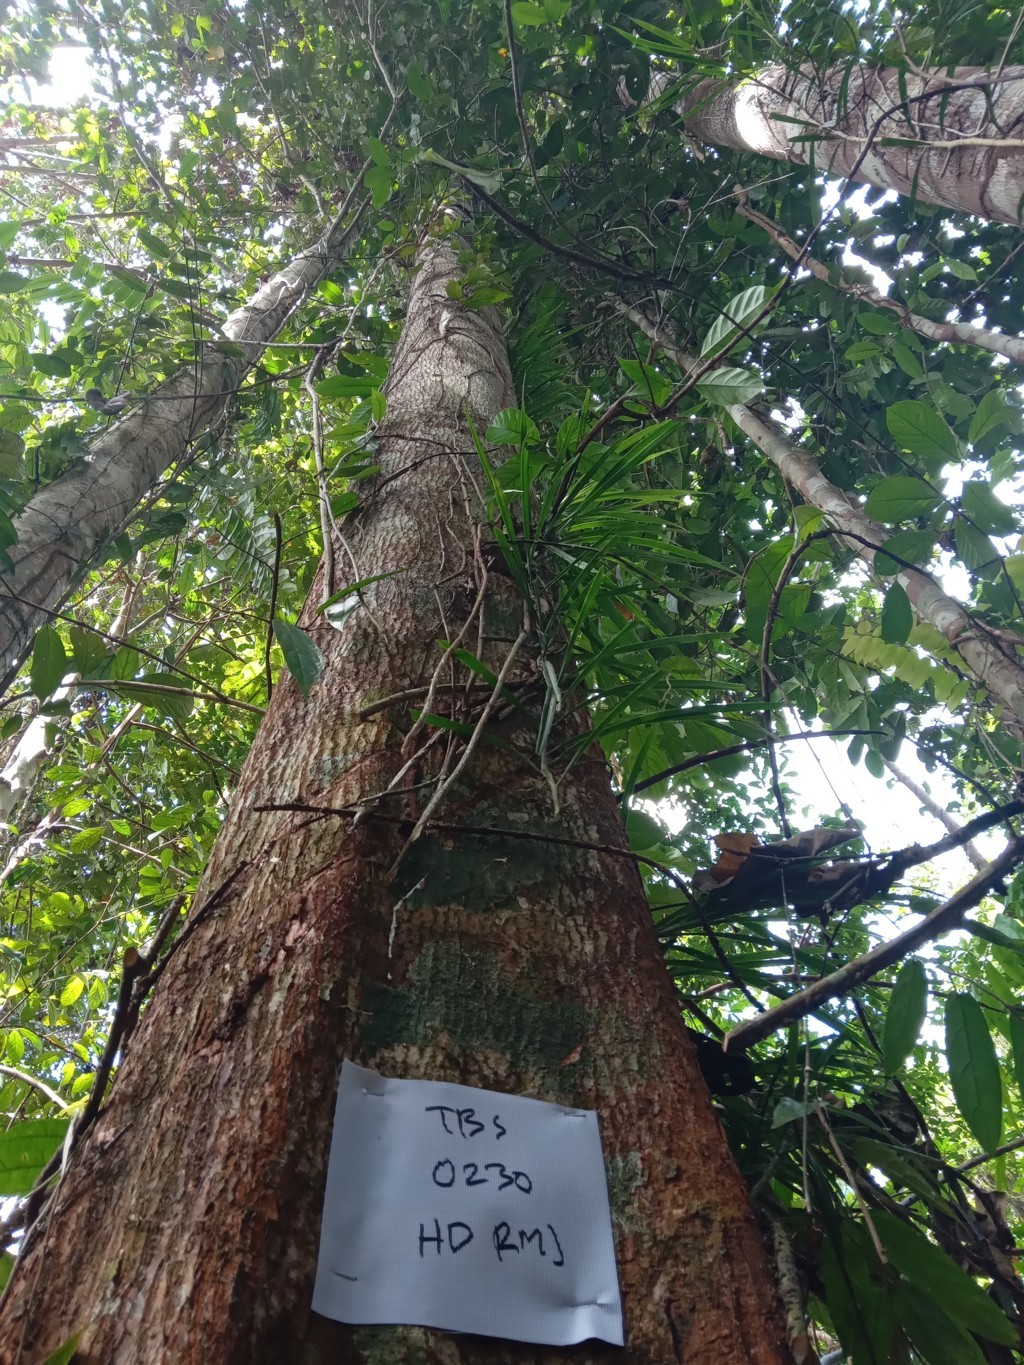 TBs
0230
HD RMJ